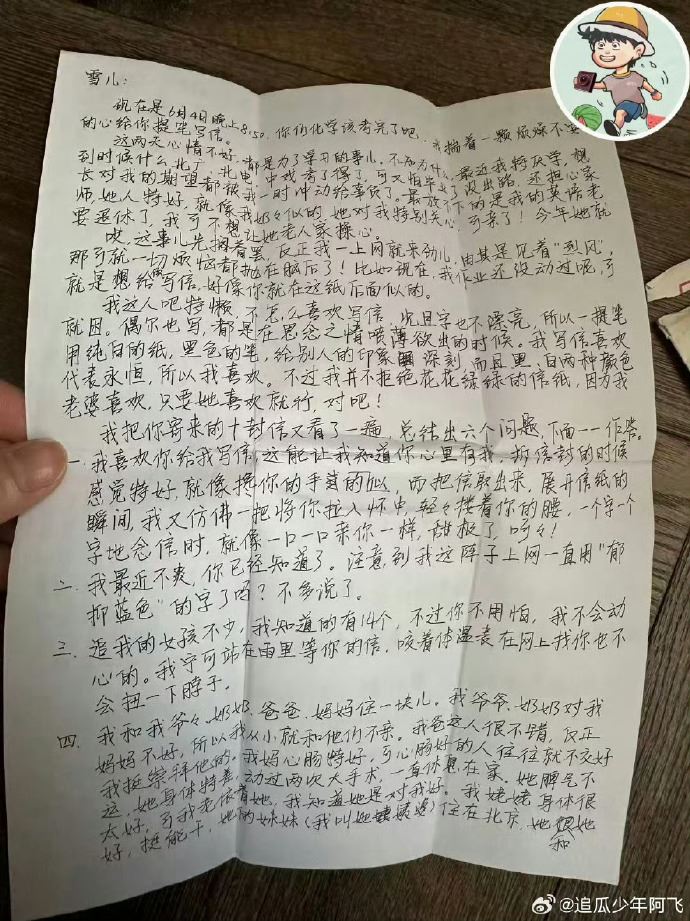 雪儿:
现在是6月4日晚上8:50,你们化学该考完了吧,我揣着一颗烦燥不安
的心给你提笔写信。
这两天心情不好,都是为了学习的事儿,不知为什么,最近我特厌学,想
到时候什么北广、北电、中戏考了得了,可又怕毕业了没出路,还担心家
长对我的期望都被我一时冲动给辜负了。最放不下的是我的英语老
师,她人特好,就像我奶々似的,她对我特别关心,可亲了!今年她就
要退休了,我可不想让她老人家操心。
哎,这事儿先搁着罢,反正我一上网就来劲儿,由其是见着“烈风”,
那可就一切烦恼都抛在脑后了!比如现在,我作业还没动过呢,可
就是想给你写信,好像你就在这纸后面似的。
我这人吧特懒,不怎么喜欢写信,况且字也不漂亮,所以一提笔
就困。偶尔也写,都是在思念之情喷薄欲出的时候。我写信喜欢
用纯白的纸,黑色的笔,给别人的印象深刻,而且黑、白两种颜色
代表永恒,所以我喜欢。不过我并不拒绝花花绿绿的信纸,因为我
老婆喜欢,只要她喜欢就行,对吧!
我把你寄来的十封信又看了一遍,总结出六个问题,下面一一作答。
一.我喜欢你给我写信,这能让我知道你心里有我,拆信封的时候
感觉特好,就像搀你的手进的似,而把信取出来,展开信纸的
瞬间,我又仿佛一把将你拉入怀中,轻々搂着你的腰,一个字一个
字地念信时,就像一口一口亲你一样,甜极了,呵々!
二.我最近不爽,你已经知道了。注意到我这阵子上网一直用“郁
抑蓝色”的字了吗?不多说了。
三.追我的女孩不少,我知道的有14个,不过你不用怕,我不会动
心的。我宁可站在雨里等你的信,咬着体温表在网上找你也不
会扭一下脖子。
四.我和我爷々、奶奶、爸爸、妈妈住一块儿。我爷爷、奶奶对我
妈妈不好,所以我从小就和他们不亲。我爸这人很不错,反正
我挺崇拜他的。我妈心肠特好,可心肠好的人往往就不交好
运,她身体特差,动过两次大手术,一直休息在家。她脾气不
太好,可我老依着她,我知道她是对我好。我姥姥身体很
好,挺能干,她的妹妹(我叫她姨姥姥)住在北京,她和她
@追瓜少年阿飞